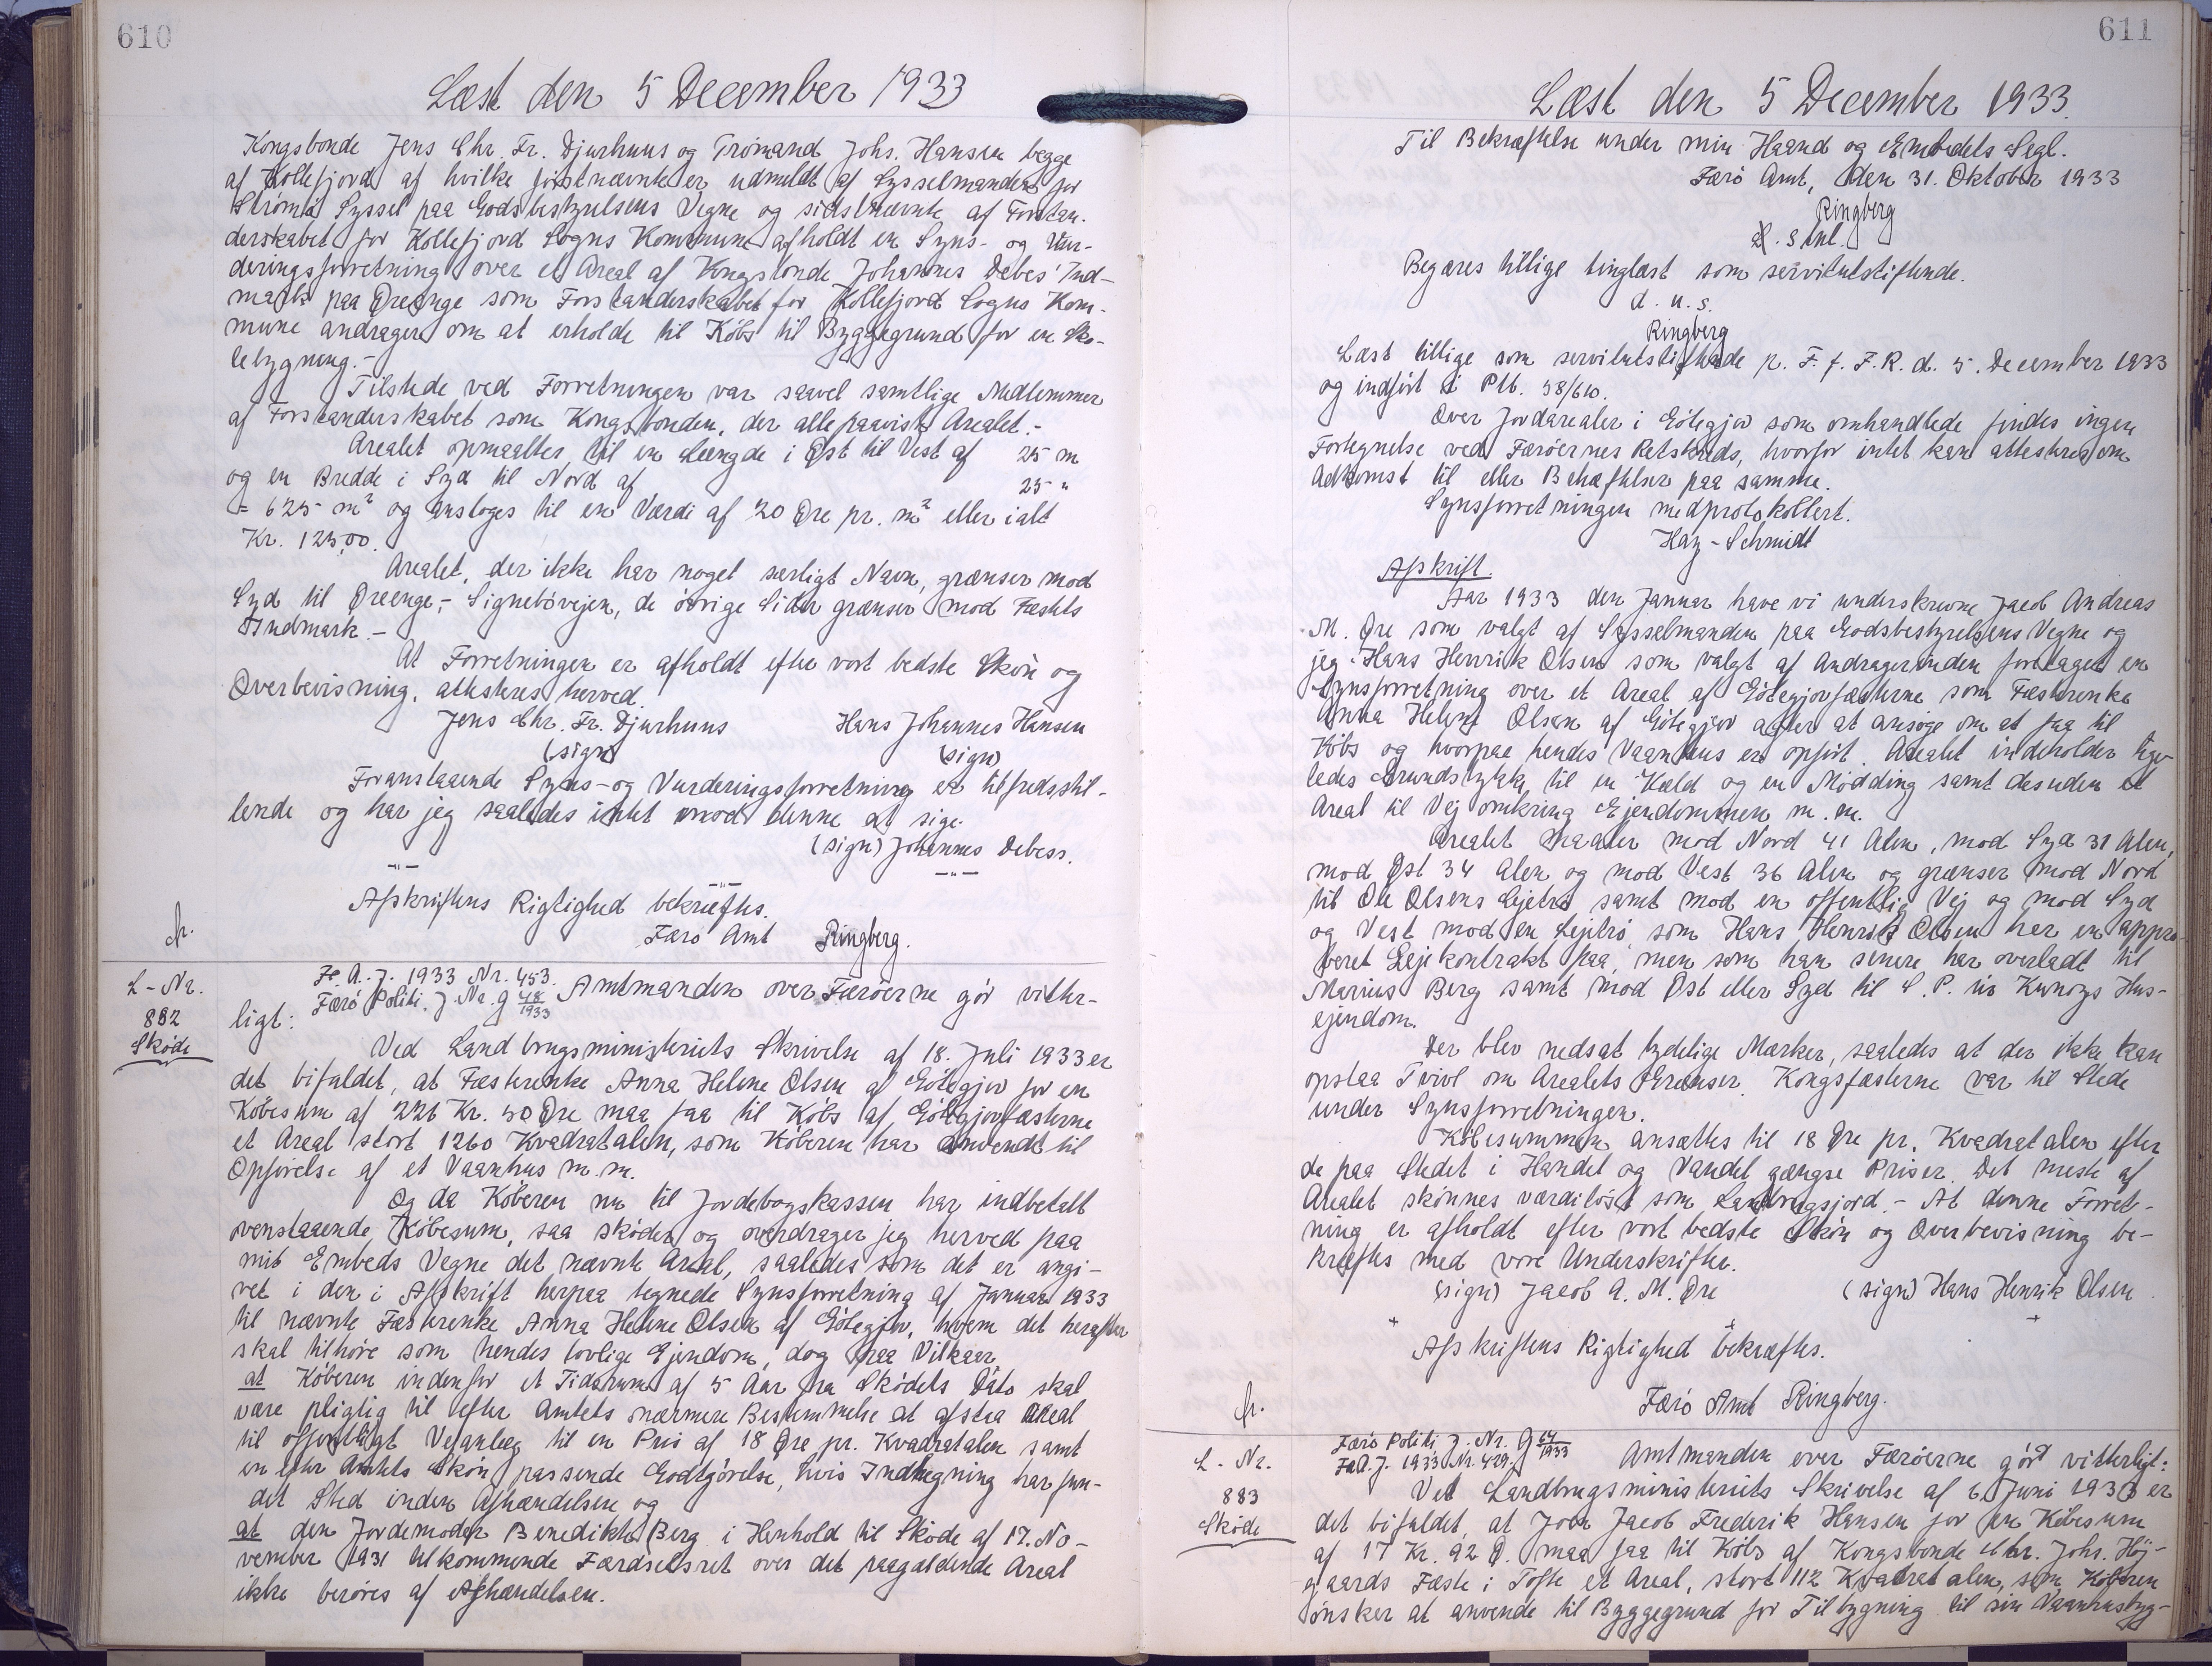 610
Læst den 5 December 1933
Kongsbonde Jens Chr. Fr. Djurhuus og Tromand Johs. Hansen begge
af Kollefjord af hvilke förstnævnte er udmeldt af Sysselmanden for
Strömö Syssel paa Godsbestyrelsens Vegne og sidstnævnte af Forstan-
derskabet for Kollefjord Sogns Kommune afholdt en Syns- og Vur-
deringsforretning over et Areal af Kongsbonde Johannes Debes' Ind-
mark paa Öreenge som Forstanderskabet for Kollefjord Sogns Kom-
mune andrager om at erholde til Köbs til Byggegrund for en Sko-
lebygning.-
Tilstede ved Forretningen var saavel samtlige Medlemmer
af Forstanderskabet som Kongsbonden, der alle paaviste Arealet.-
Arealet opmaaltes til en Længde i Øst til Vest af 25 m
og en Bredde i Syd til Nord af 25 "
= 625 m² og ansloges til en Værdi af 20 Øre pr. m² eller ialt
Kr. 125,00.
Arealet, der ikke har noget særligt Navn, grænser mod
Syd til Öreenge,- Signebövejen, de övrige Sider grænser mod Fæstets
Indmark.-
At Forretningen er afholdt efter vort bedste Skön og
Overbevisning, attesteres herved.
Jens Chr. Fr. Djurhuus Hans Johannes Hansen
(sign) (sign)
Foranstaaende Syns- og Vurderingsforretning er tilfredsstil-
lende og har jeg saaledes intet imod denne at sige.
(sign) Johannes Debess.
-"- -"- -"-
Afskriftens Rigtighed bekræftes.
Færö Amt Ringberg.
L-Nr.
882
Sköde
Fæ. A. J. 1933 Nr. 453.
Færö Politi. J. Nr. g 48/1933 Amtmanden over Færöerne gör vitter-
ligt:
Ved Landbrugsministeriets Skrivelse af 18. Juli 1933 er
det bifaldet, at Fæsterenke Anna Helene Olsen af Götegjov for en
Köbesum af 226 Kr. 80 Øre maa faa til Köbs af Götegjovfæsterne
et Areal stort 1260 Kvadratalen, som Köberen har anvendt til
Opförelse af et Vaanhus m.m.
Og da Köberen nu til Jordebogskassen har indbetalt
ovenstaaende Köbesum, saa sköder og overdrager jeg herved paa
mit Embeds Vegne det nævnte Areal, saaledes som det er angi-
vet i den i Afskrift herpaa tegnede Synsforretning af Januar 1933
til nævnte Fæsterenke Anna Helene Olsen af Götegjov, hvem det herefter
skal tilhöre som hendes lovlige Ejendom, dog paa Vilkaar,
at Köberen indenfor et Tidsrum af 5 Aar fra Sködets Dato skal
være pligtig til efter Amtets nærmere Bestemmelse at afstaa Areal
til offentligt Vejanlæg til en Pris af 18 Øre pr. Kvadratalen samt
en efter Amtets Skön passende Godtgörelse, hvis Indhegning har fun-
det Sted inden Afhændelsen og
at den Jordemoder Benedikte Berg i Henhold til Sköde af 17. No-
vember 1931 tilkommende Færdselsret over det paagældende Areal
ikke beröres af Afhændelsen.
611
Læst den 5 December 1933.
Til Bekræftelse under min Haand og Embedets Segl.
Færö Amt, den 31. Oktober 1933
Ringberg
Begæres tillige tinglæst som servitutstiftende.
d. u. s.
Ringberg
Læst tillige som servitutstiftende p. F. f. F. R. d. 5. December 1933
og indfört i Ptb. 38/610.
Over Jordarealer i Götegjov som omhandlede findes ingen
Fortegnelse ved Færöernes Retskreds, hvorfor intet kan attesteres om
Adkomst til eller Behæftelser paa samme.
Synsforretningen medprotokolleret.
Hay-Schmidt
Afskrift.
Aar 1933 den Januar have vi underskrevne Jacob Andreas
M. Øre som valgt af Sysselmanden paa Godsbestyrelsens Vegne og
jeg Hans Henrik Olsen som valgt af Andragerinden foretaget en
Synsforretning over et Areal af Götegjovfæsterne som Fæsterenke
Anna Helene Olsen af Götegjov agter at ansöge om at faa til
Köbs og hvorpaa hendes Vaanhus er opfört. Arealet indeholder lige-
ledes Grundstykke til en Kæld og en Mödding samt desuden et
Areal til Vej omkring Ejendommen m.m.
Arealet maaler mod Nord 41 Alen, mod Syd 31 Alen,
mod Øst 34 Alen og mod Vest 36 Alen og grænser mod Nord
til Ole Olsens Lejetrö samt mod en offentlig Vej og mod Syd
og Vest mod en Lejetrö, som Hans Henrik Olsen har en appro-
beret Lejekontrakt paa, men som han senere har overladt til
Marius Berg samt mod Øst eller Syd til S. P. úr Kunoys Hus-
ejendom.
Der blev nedsat tydelige Mærker, saaledes at der ikke kan
opstaa Tvivl om Arealets Grænser. Kongsfæsterne var til Stede
under Synsforretningen.
Köbesummen ansættes til 18 Øre pr. Kvadratalen efter
de paa Stedet i Handel og Vandel gængse Priser. Det meste af
Arealet skönnes værdilöst som Landbrugsjord.- At denne Forret-
ning er afholdt efter vort bedste Skön og Overbevisning be-
kræftes med vore Underskrifter.
(sign) Jacob A. M. Øre (sign) Hans Henrik Olsen
Afskriftens Rigtighed bekræftes.
Færö Amt Ringberg.
L-Nr.
883
Sköde
Færö Politi J. Nr. g 64/1933
Fæ A. J. 1933 Nr. 429. Amtmanden over Færöerne gör vitterligt:
Ved Landbrugsministeriets Skrivelse af 6. Juni 1933 er
det bifaldet, at Joen Jacob Frederik Hansen for en Köbesum
af 17 Kr. 92 Ø. maa faa til Köbs af Kongsbonde Chr. Johs. Höj-
gaards Fæste i Tofte et Areal, stort 112 Kvadratalen, som Köberen
önsker at anvende til Byggegrund for Tilbygning til sin Vaanhusbyg-